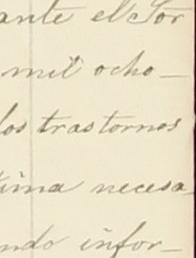 ante el Sor
mil ocho_
los trastornos
tima necesa_
ndo infor_